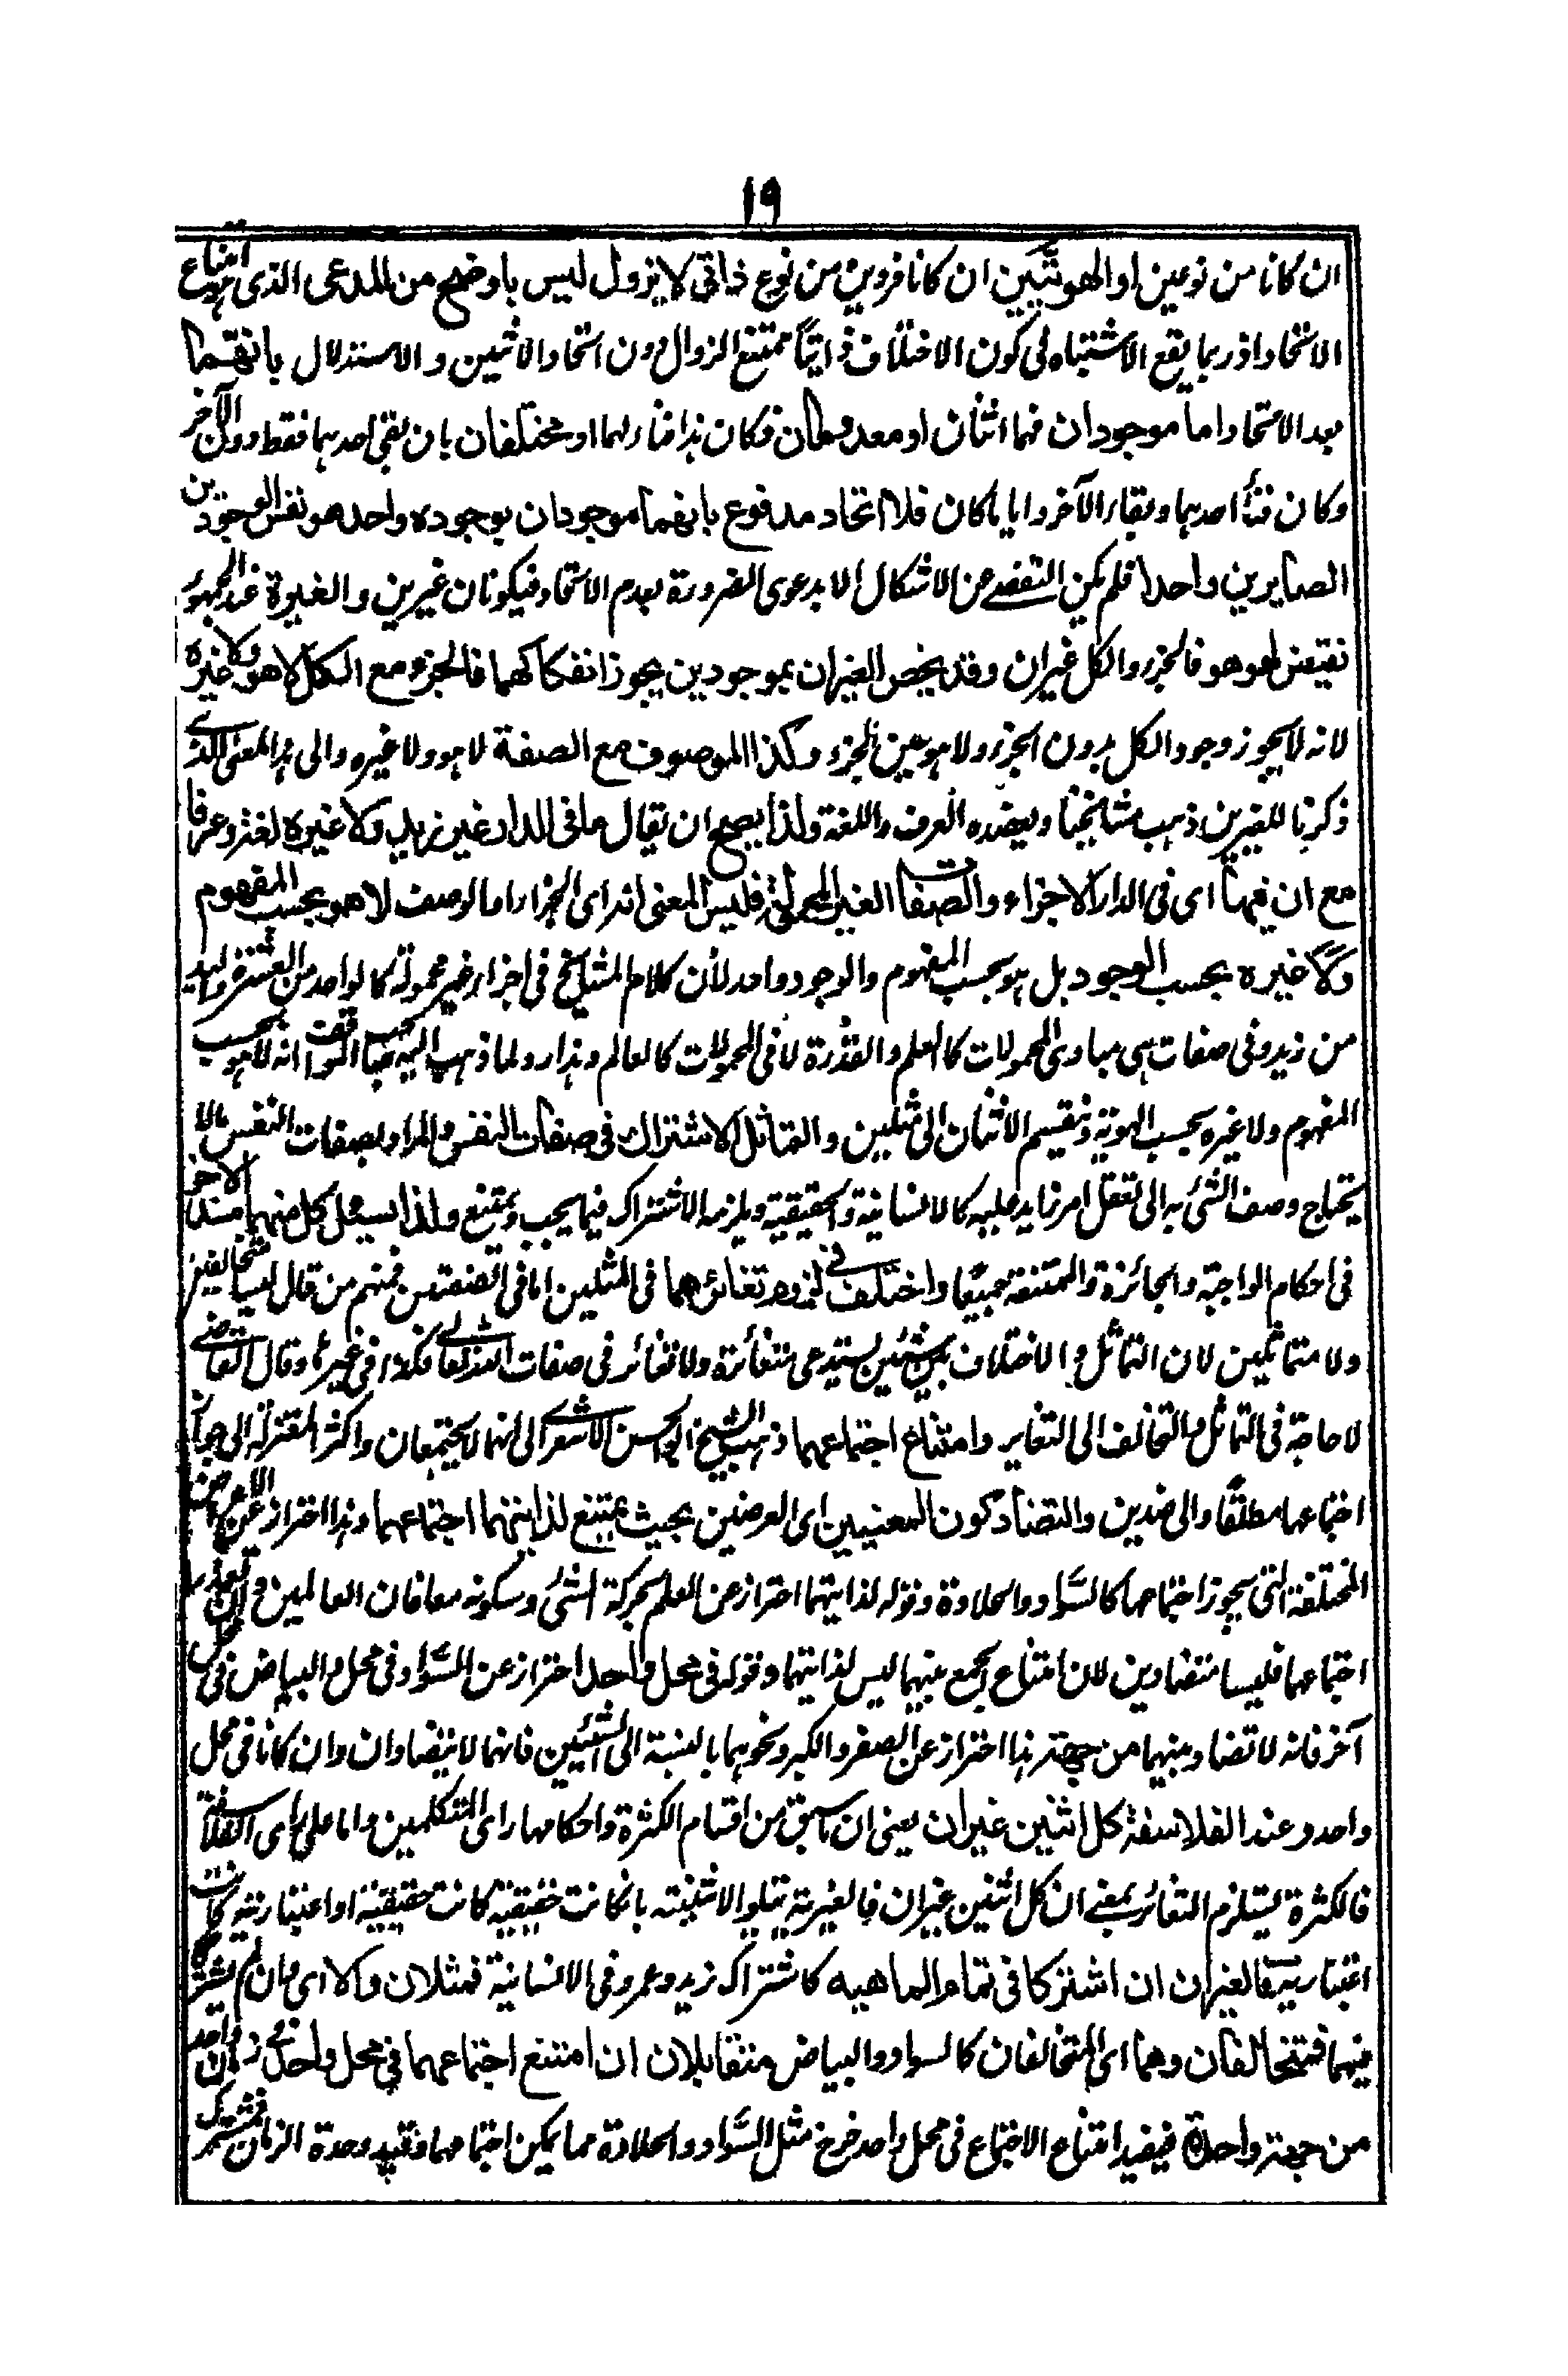 ١٩
ان كانا من نوعين او الهويتين ان كانا فردين من نوع ذاتي لا يزول ليس باوضح من المدعى الذى هو امتناع
الاتحاد اذ ربما يقع الاشتباه فى كون الاختلاف ذاتيا ممتنع الزوال دون اتحاد الاثنين و الاستدلال بانهما
بعد الاتحاد اما موجودان فهما اثنان او معدومان فكان هذا فناء لهما او مختلفان بان بقى احدهما فقط دون الآخر
وكان فناء احدهما وبقاء الآخر وايا ما كان فلا اتحاد مدفوع بانهما موجودان بوجود واحد هو نفس الوجودين
الصايرين واحدا فلم يكن التفصى عن الاشكال الا بدعوى الضرورة بعدم الاتحاد فيكونان غيرين والغيرة عند الجمهور
نقيض هو هو فالجزء والكل غيران وقد يخص الغيران بموجودين يجوز انفكاكهما فالجزء مع الكل لا هو ولا غيره
لانه لا يجوز وجود الكل بدون الجزء ولا هو عين الجزء وكذا الموصوف مع الصفة لا هو ولا غيره والى هذا المعنى الذى
ذكرنا للغيرين ذهب مشايخنا ويعضده العرف واللغة ولذا يصح ان يقال ما فى الدار غير زيد ولا غيره لغة وعرفا
مع ان فيها اى فى الدار الاجزاء والصفات الغير المحمولة فليس المعنى انه اى الجزء او الوصف لا هو بحسب المفهوم
ولا غيره بحسب الوجود بل هو بحسب المفهوم والوجود واحد لأن كلام المشايخ فى اجزاء غير محمولة كالواحد من العشرة واليد
من زيد وفى صفات هى مبادى المحمولات كالعلم والقدرة لا فى المحمولات كالعالم وهذا رد لما ذهب اليه صاحب المواقف انه لا هو بحسب
المفهوم ولا غيره بحسب الهوية وتقسيم الاثنان الى مثلين والتماثل الاشتراك فى صفات النفس والمراد بصفات النفس ما لا
يحتاج وصف الشئ به الى تعقل امر زايد عليه كالانسانية والحقيقية ويلزمه الاشتراك فيما يجب ويمتنع ولذا يسد كل منهما مسد الآخر
فى احكام الواجبة والجائزة والممتنعة جميعا واختلف فى لزوم تغائرهما فى المثلين اما فى الصفتين فمنهم من قال ليسا متخالفين
ولا متماثلين لان التماثل و الاختلاف بين شيئين يستدعى متغائرة ولا تغائر فى صفات الله تعالى فكذا فى غيرها وقال القاضى
لا حاجة فى التماثل والتخالف الى التغاير وامتناع اجتماعهما ذهب الشيخ ابو الحسن الاشعرى الى انهما لا يجتمعان واكثر المعتزلة الى جواز
اجتماعهما مطلقا والى ضدين والتضاد كون المعنيين اى العرضين بحيث يمتنع لذاتيهما اجتماعهما وهذا احتراز عن الامور
المختلفة التى يجوز اجتماعهما كالسواد والحلاوة وقوله لذاتيهما احتراز عن العلم بحركة الشئ وسكونه معا فان العالمين وان تعذر
اجتماعهما فليسا متضادين لان امتناع الجمع بينهما ليس لذاتيهما وقوله فى محل واحد احتراز عن السواد فى محل والبياض فى محل
آخر فانه لا تضاد بينهما من جهة هذا احتراز عن الصغر والكبر ونحوهما بالنسبة الى الشيئين فانهما لا يتضادان وان كانا فى محل
واحد و عند الفلاسفة كل اثنين غيران يعنى ان ما سبق من اقسام الكثرة واحكامها راى المتكلمين واما على راى الفلاسفة
فالكثرة يستلزم التغائر بمعنى ان كل اثنين غيران فالغيرية يتلو الاثنينية بان كانت حقيقية كانت حقيقية او اعتبارية كانت
اعتبارية فالغيران ان اشتركا فى تمام الماهيه كاشتراك زيد وعمرو فى الانسانية فمثلان والا اى وان لم يشتركا
فيهما فمتخالفان وهما اى المتخالفان كالسواد والبياض متقابلان ان امتنع اجتماعهما فى محل واحد فى زمان واحد
من جهة واحدة فيفيد امتناع الاجتماع فى محل واحد خرج مثل السواد والحلاوة مما يمكن اجتماعهما وقيد وحدة الزمان مشترك